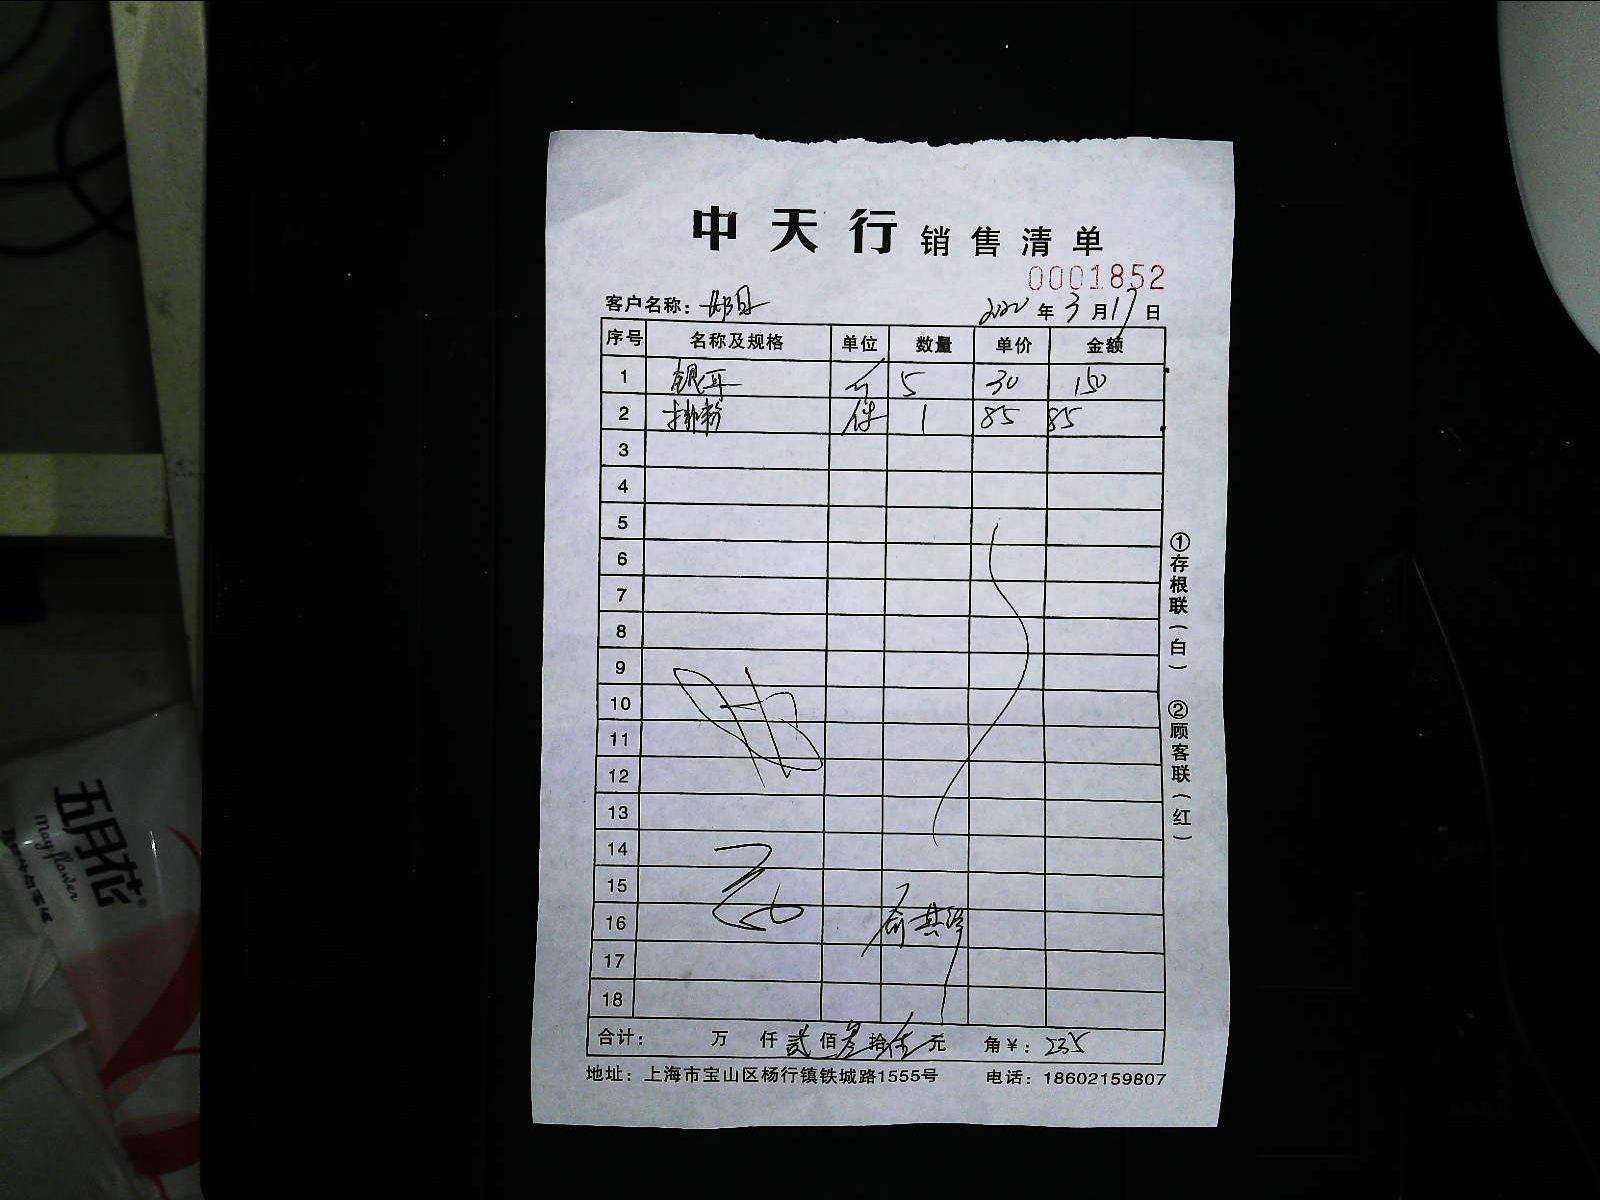 中天行销售清单
0001852
客户名称： 2020年3月17日
序号 名称及规格 单位 数量 单价 金额
1 银耳 斤 5 30 150
2 排粉 件 1 85 85
3
4
5
6
7
8
9
10
11
12
13
14
15
16
17
18
合计： 万 仟 贰 佰 叁 拾 伍 元 角 ¥：235
地址：上海市宝山区杨行镇铁城路1555号 电话：18602159807
①存根联（白） ②顾客联（红）
五月花
May flower